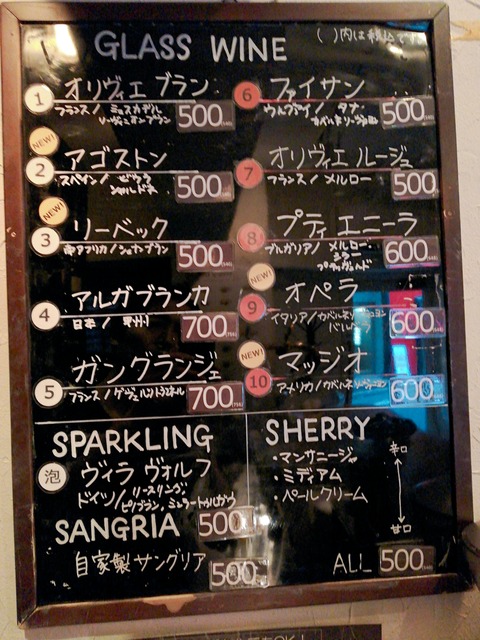 GLASS WINE
( )内は税込です
1 オリヴィエ ブラン
フランス/ ミュスカデル
ソーヴィニオンブラン 500
NEW!
2 アゴストン
スペイン/ ビウラ
シャルドネ 500
NEW!
3 リーベック
南アフリカ/ シュナンブラン 500
4 アルガブランカ
日本/ 甲州 700
5 ガングランジェ
フランス/ゲヴュルツトラミネール 700
6 ファイサン
ウルグアイ/ タナ 500
7 オリヴィエ ルージュ
フランス/メルロー 500
8 プティ エニーラ
ブルガリア/ メルロー・
シラー
プティヴェルド 600
NEW!
9 オペラ
イタリア/カベルネソーヴィニヨン
バルベーラ 600
NEW!
10 マッジオ
アメリカ/カベルネソーヴィニヨン 600
SPARKLING
泡 ヴィラ ヴォルフ
ドイツ/ リースリング
ピノブラン、ミュラートゥルガウ
500
SANGRIA
自家製サングリア 500
SHERRY
・マンサニージャ 辛口
・ミディアム
・ペールクリーム
甘口
ALL 500